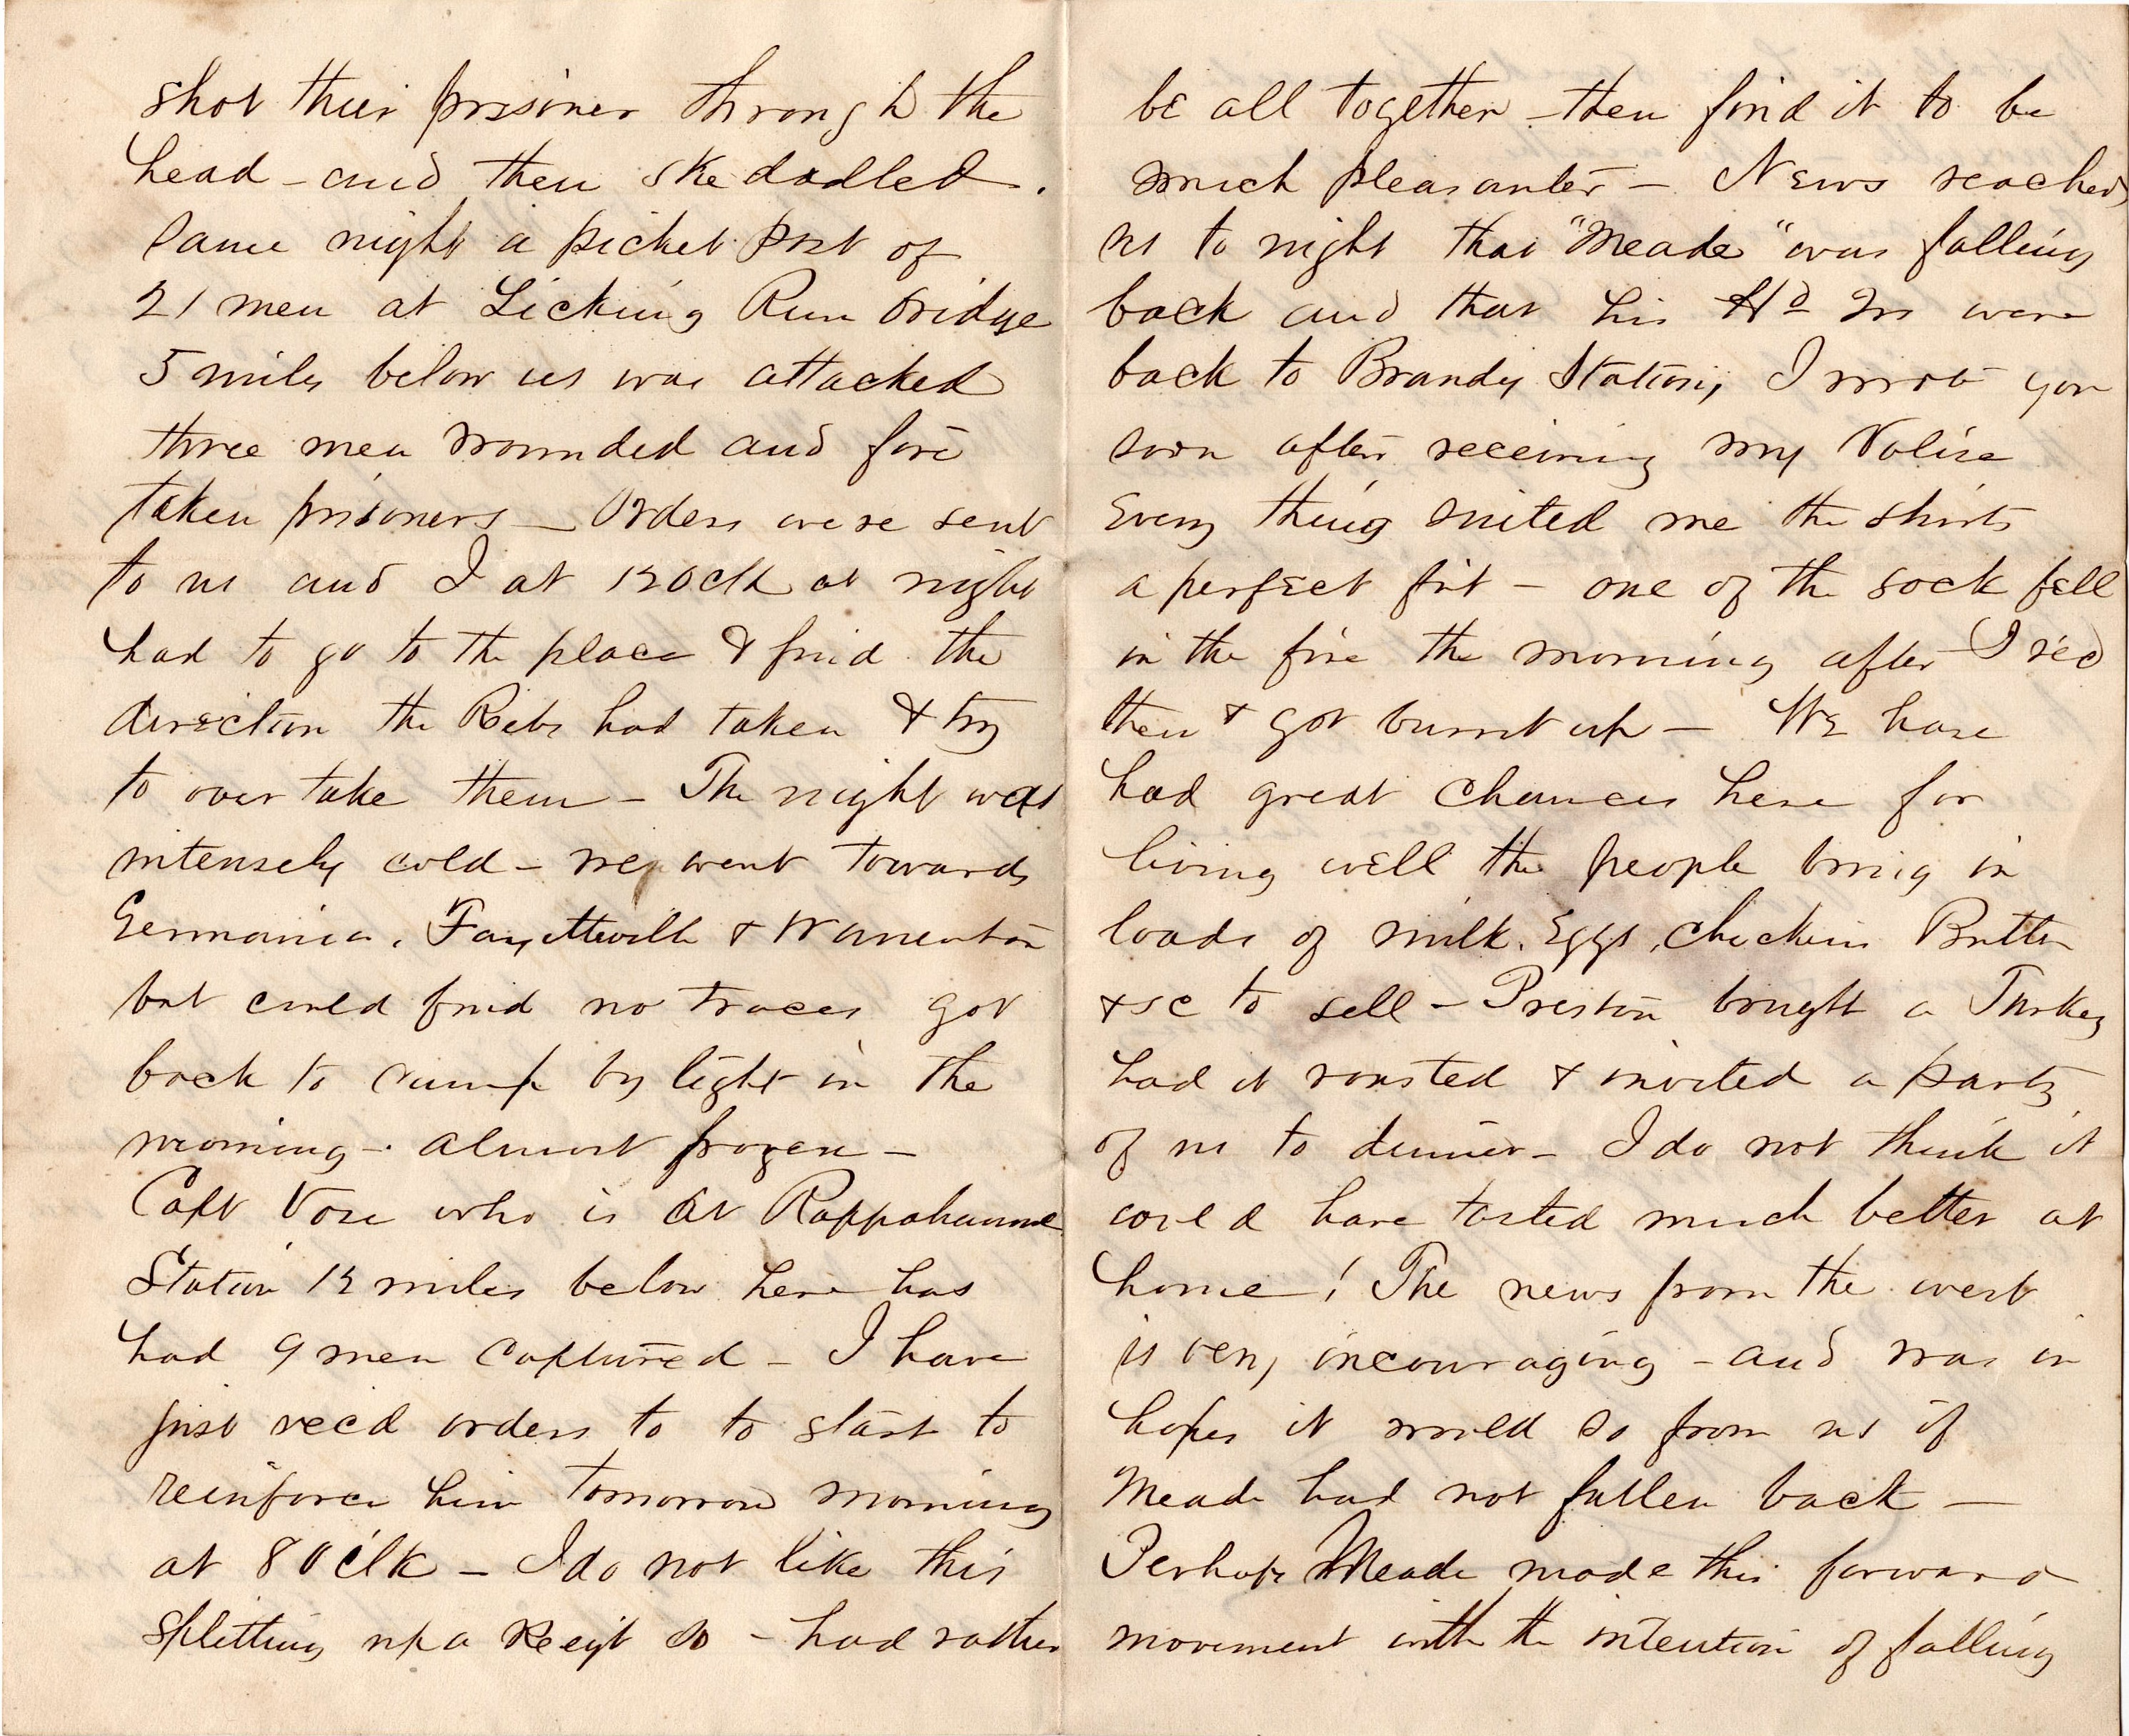 shot their prisoner through the
head - and then skedadled.
Same night a picket post of
21 men at Licking Run bridge
5 miles below us was attacked
three men wounded and five
taken prisoners — Orders were sent
to us and I at 12 Oclk at night
had to go to the place & find the
direction the Rebs had taken & try
to over take them - The night was
intensely cold - we went towards
Germania, Fayetteville & Warrenton
but could find no traces got
back to camp by light in the
morning - almost frozen -
Capt Vose who is at Rappahannoc
Station 12 miles below here has
had 9 men captured - I have
just recd orders to to start to
reinforce him tomorrow morning
at 8 Oclk - I do not like this
splitting up a Regt so - had rather
be all together - then find it to be
much pleasanter - News reached
us to night that "Meade" was falling
back and that his Hd Qrs were
back to Brandy Station, I wrote you
soon after receiving my Valise
Every thing suited me the shirts
a perfect fit - one of the sock fell
in the fire the morning after I recd
then & got burnt up - We have
had great chances here for
living well the people bring in
loads of milk, Eggs, chickens Butter
&c to sell - Preston bought a Turkey
had it roasted & invited a party
of us to dinner - I do not think it
could have tasted much better at
home! The news from the west
is very incouraging - and was in
hopes it would so from us if
Meade had not fallen back —
Perhaps Meade made this forward
movement with the intention of falling